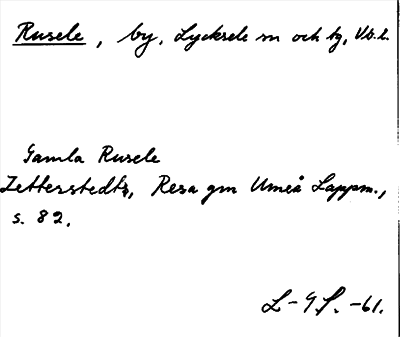 Rusele, by, Lycksele sn och tg, Vb. l.
Gamla Rusele
Zetterstedts, Resa gm Umeå Lappm.,
s. 82.
L-GS. -61.